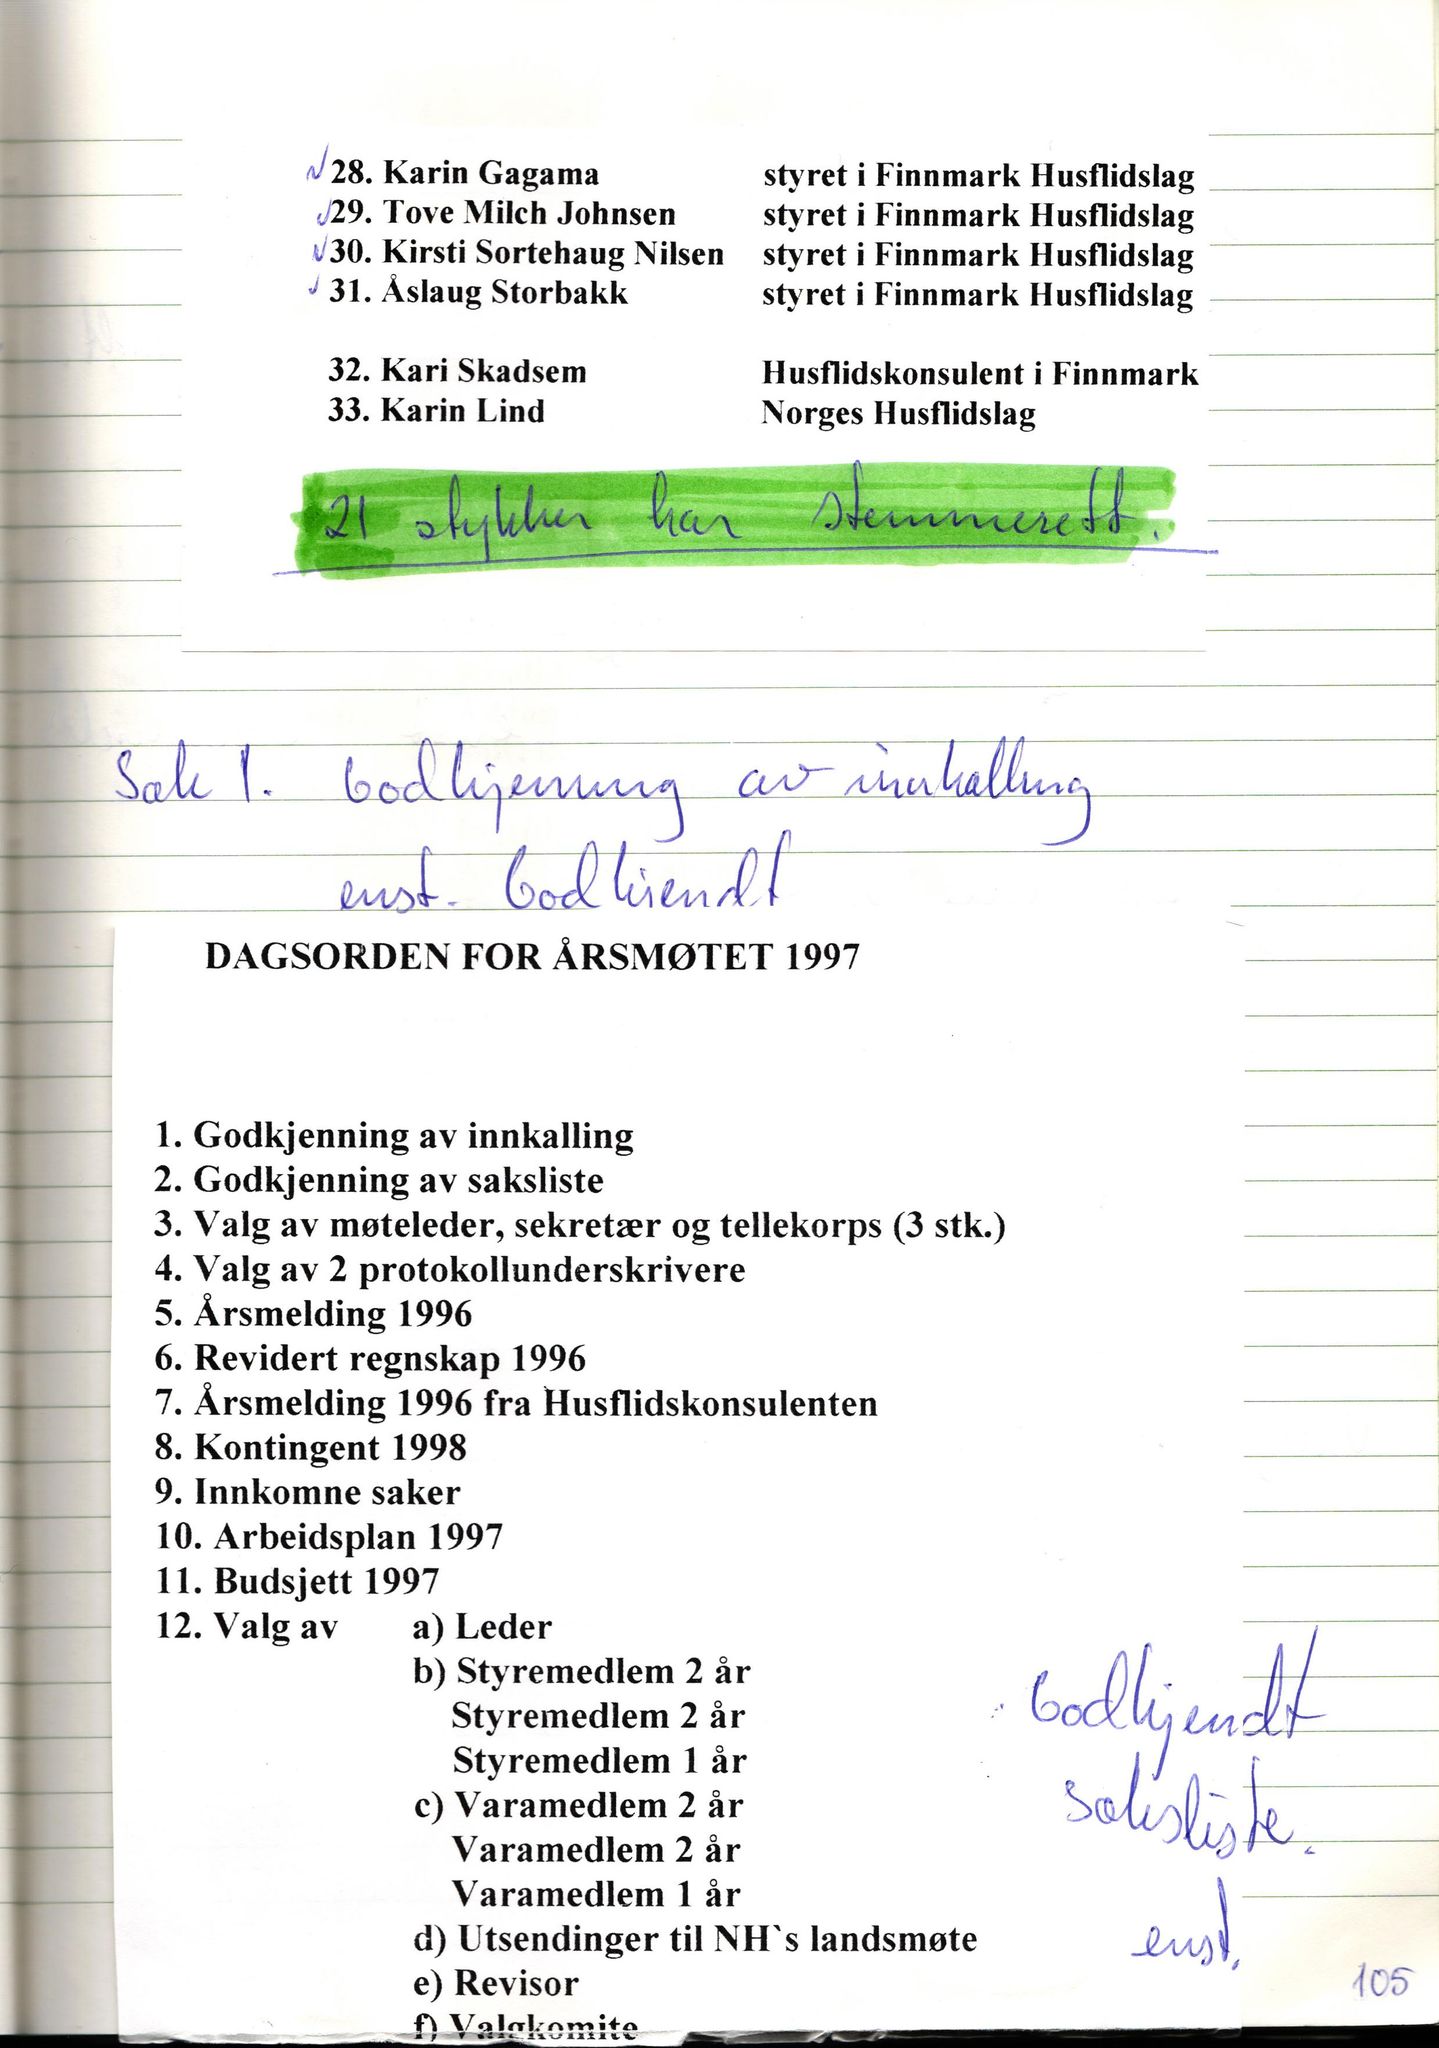 28. Karin Gagama styret i Finnmark Husflidslag
29. Tove Milch Johnsen styret i Finnmark Husflidslag
30. Kirsti Sortehaug Nilsen styret i Finnmark Husflidslag
31. Åslaug Storbakk styret i Finnmark Husflidslag
32. Kari Skadsem Husflidskonsulent i Finnmark
33. Karin Lind Norges Husflidslag
21 stykker har stemmerett.
Sak 1. Godkjenning av innkalling
enst. Godkjendt
DAGSORDEN FOR ÅRSMØTET 1997
1. Godkjenning av innkalling
2. Godkjenning av saksliste
3. Valg av møteleder, sekretær og tellekorps (3 stk.)
4. Valg av 2 protokollunderskrivere
5. Årsmelding 1996
6. Revidert regnskap 1996
7. Årsmelding 1996 fra Husflidskonsulenten
8. Kontingent 1998
9. Innkomne saker
10. Arbeidsplan 1997
11. Budsjett 1997
12. Valg av a) Leder
b) Styremedlem 2 år
Styremedlem 2 år
Styremedlem 1 år
c) Varamedlem 2 år
Varamedlem 2 år
Varamedlem 1 år
d) Utsendinger til NH`s landsmøte
e) Revisor
f) Valgkomite
Godkjendt
saksliste.
enst.
105